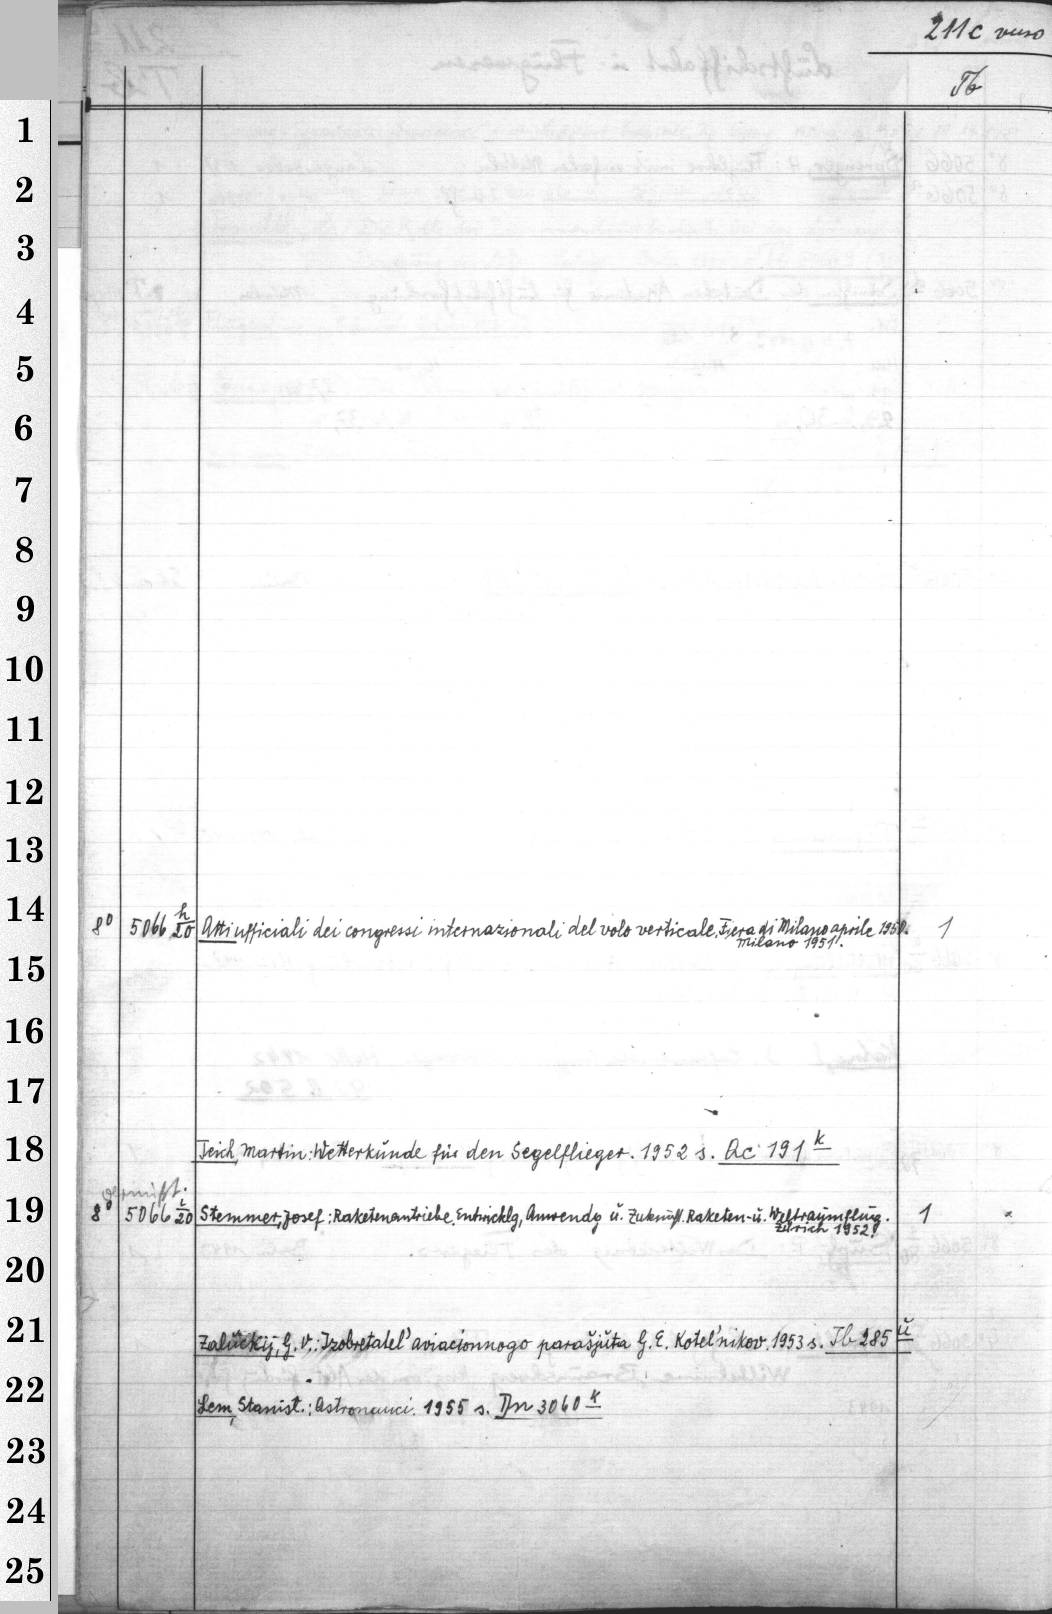 211c verso
Tb
1
2
3
4
5
6
7
8
9
10
11
12
13
14
8° 5066 h/20 Atti ufficiali dei congressi internazionali del volo verticale, Fiera di Milano aprile 1950. 1
Milano 1951.
15
16
17
18
Teich, Martin: Wetterkunde für den Segelflieger. 1952 s. Ac 191 k
vermißt.
19
8° 5066 i/20 Stemmer, Josef: Raketenantriebe, Entwicklg, Anwendg ü. Zukunft. Raketen- ü. Weltraumflug. 1
Zürich 1952.
20
21
Zaluckij, G. V.: Izobretatel' aviacionnogo parašjuta G. E. Kotel'nikov. 1953 s. Tb 285 ü
22
Lem, Stanisł.: Astronauci. 1955 s. Dn 3060 k
23
24
25